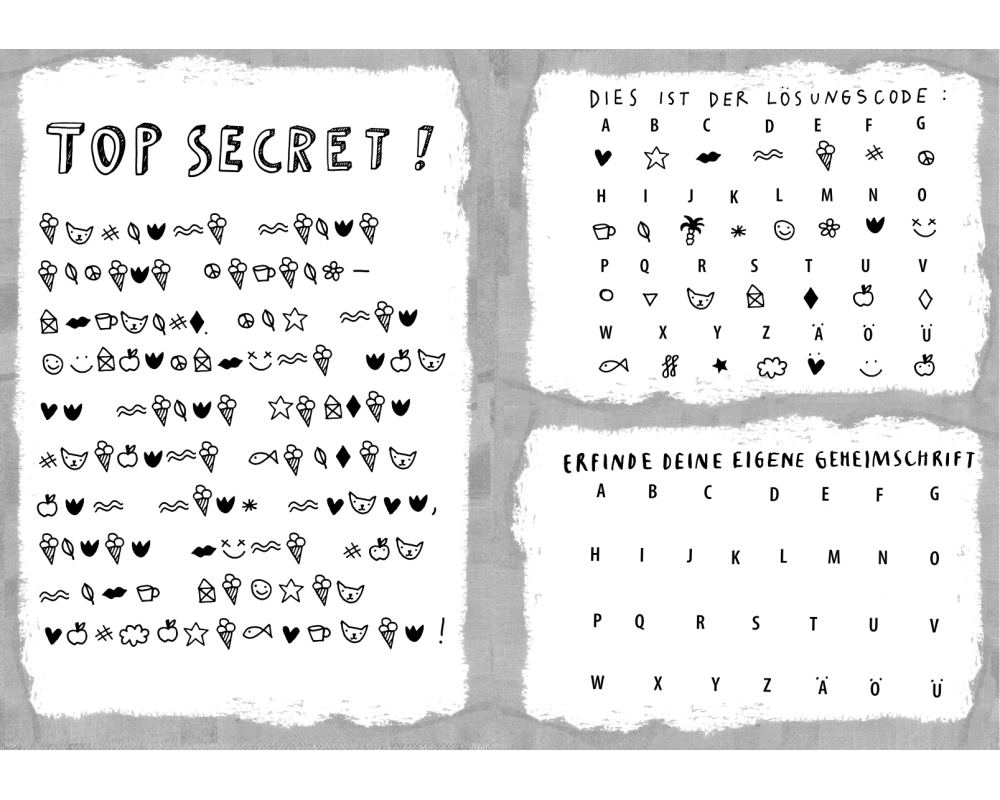 TOP SECRET!
DIES IST DER LÖSUNGSCODE:
A B C D E F G
H I J K L M N O
P Q R S T U V
W X Y Z Ä Ö Ü
ERFINDE DEINE EIGENE GEHEIMSCHRIFT
A B C D E F G
H I J K L M N O
P Q R S T U V
W X Y Z Ä Ö Ü